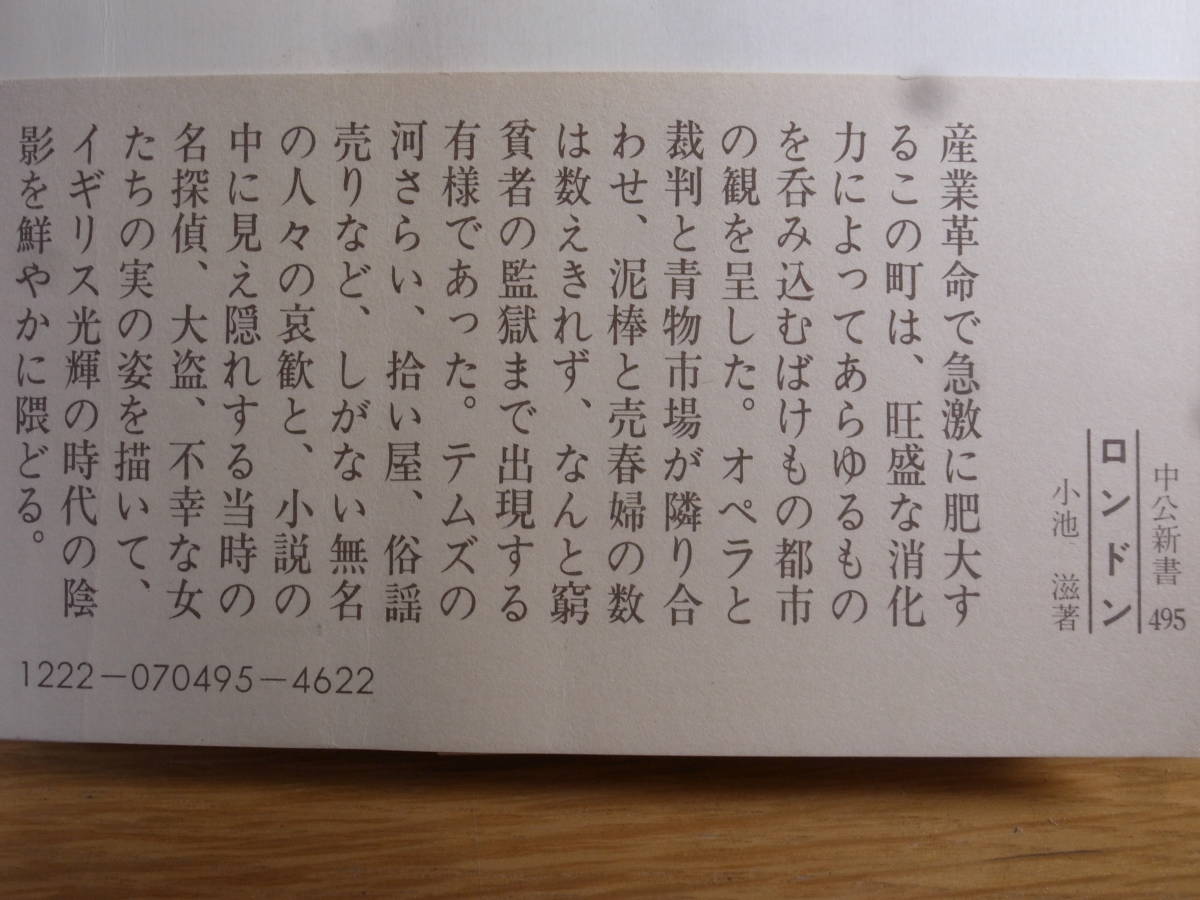 中公新書 495
ロンドン
小池 滋著
産業革命で急激に肥大す
るこの町は、旺盛な消化
力によってあらゆるもの
を呑み込むばけもの都市
の観を呈した。オペラと
裁判と青物市場が隣り合
わせ、泥棒と売春婦の数
は数えきれず、なんと窮
貧者の監獄まで出現する
有様であった。テムズの
河さらい、拾い屋、俗謡
売りなど、しがない無名
の人々の哀歓と、小説の
中に見え隠れする当時の
名探偵、大盗、不幸な女
たちの実の姿を描いて、
イギリス光輝の時代の陰
影を鮮やかに隈どる。
1222-070495-4622